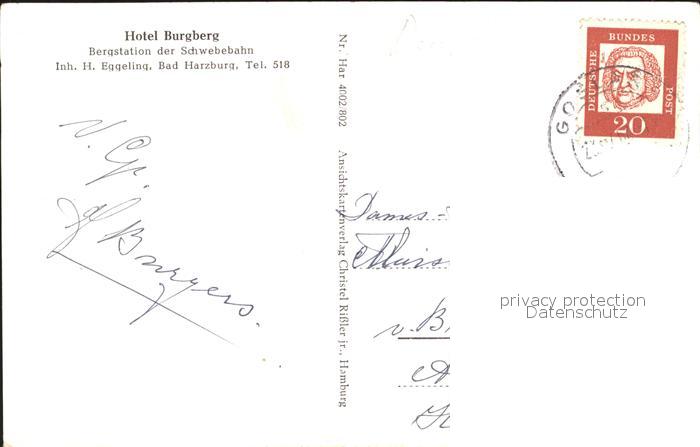 Hotel Burgberg
Bergstation der Schwebebahn
Inh. H. Eggeling, Bad Harzburg, Tel. 518
Nr. Har 4002.802 Ansichtskartenverlag Christel Rißler jr., Hamburg
DEUTSCHE BUNDES POST
20
GO
Burgers.
Dames-
v. B
privacy protection
Datenschutz